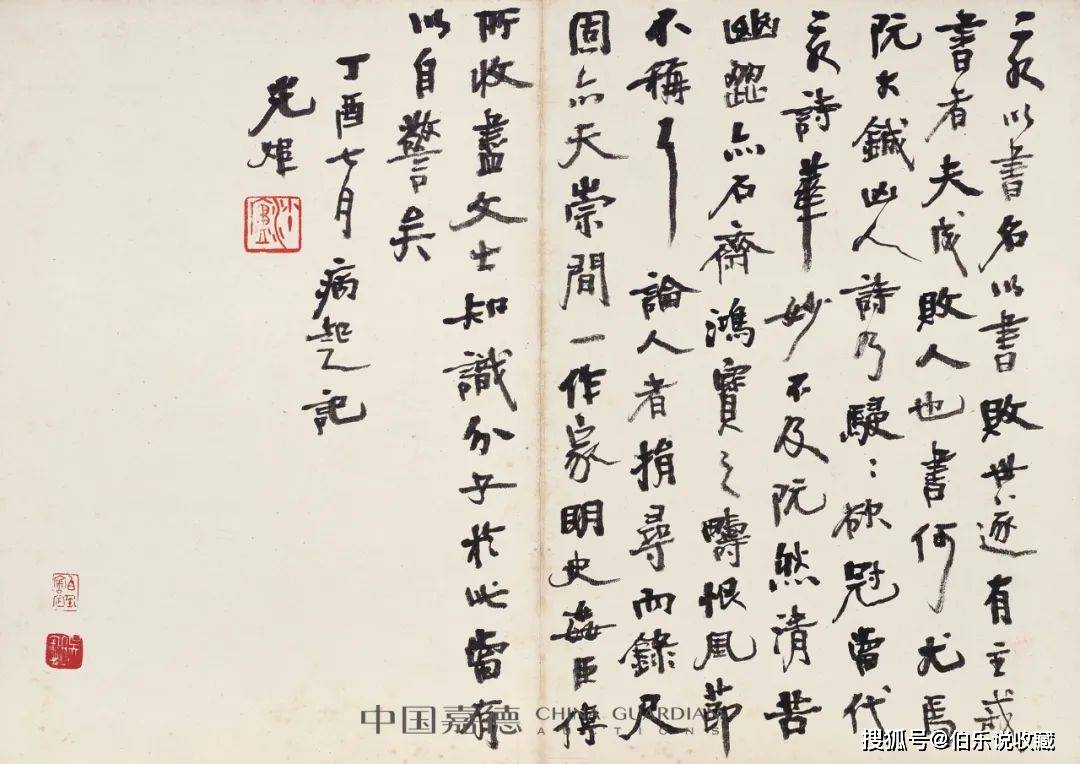 二水以書名以書敗世遂有主戒
書者夫成敗人也書何尤焉
阮大鋮凶人詩乃駸〻欲冠當代
二水詩華妙不及阮然清苦
幽澀亦石齋鴻寶之疇恨風節
不稱耳論人者捐尋而錄尺
固亦天崇間一作家明史姦臣傳
所收盡文士知識分子於此當有
以自警矣
丁酉七月病起記
光煒
中国嘉德 CHINA GUARDIAN
AUCTIONS
搜狐号@伯乐说收藏